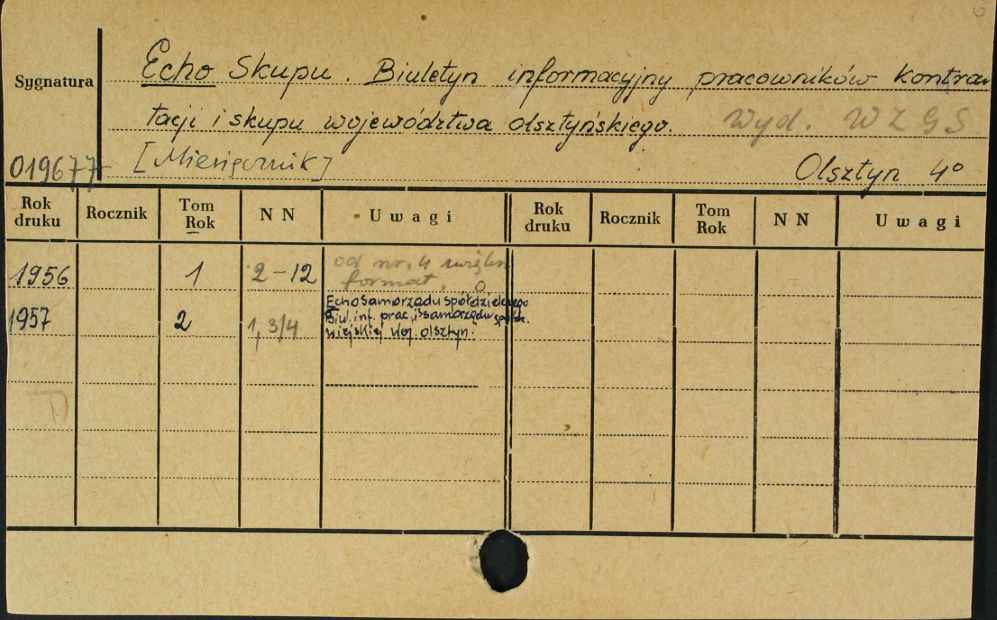 Sygnatura
Echo Skupu. Biuletyn informacyjny pracowników kontrak
tacji i skupu województwa olsztyńskiego. Wyd. WZGS
019677 [Miesięcznik] Olsztyn 4º
Rok druku Rocznik Tom Rok NN Uwagi Rok druku Rocznik Tom Rok NN Uwagi
1956 1 2-12 od nr. 4
format.
1957 2 1, 3/4 Echo Samorządu spółdzielczego
Biul. inf. prac. i samorządu spółdz.
wiejskiej woj. olsztyn.